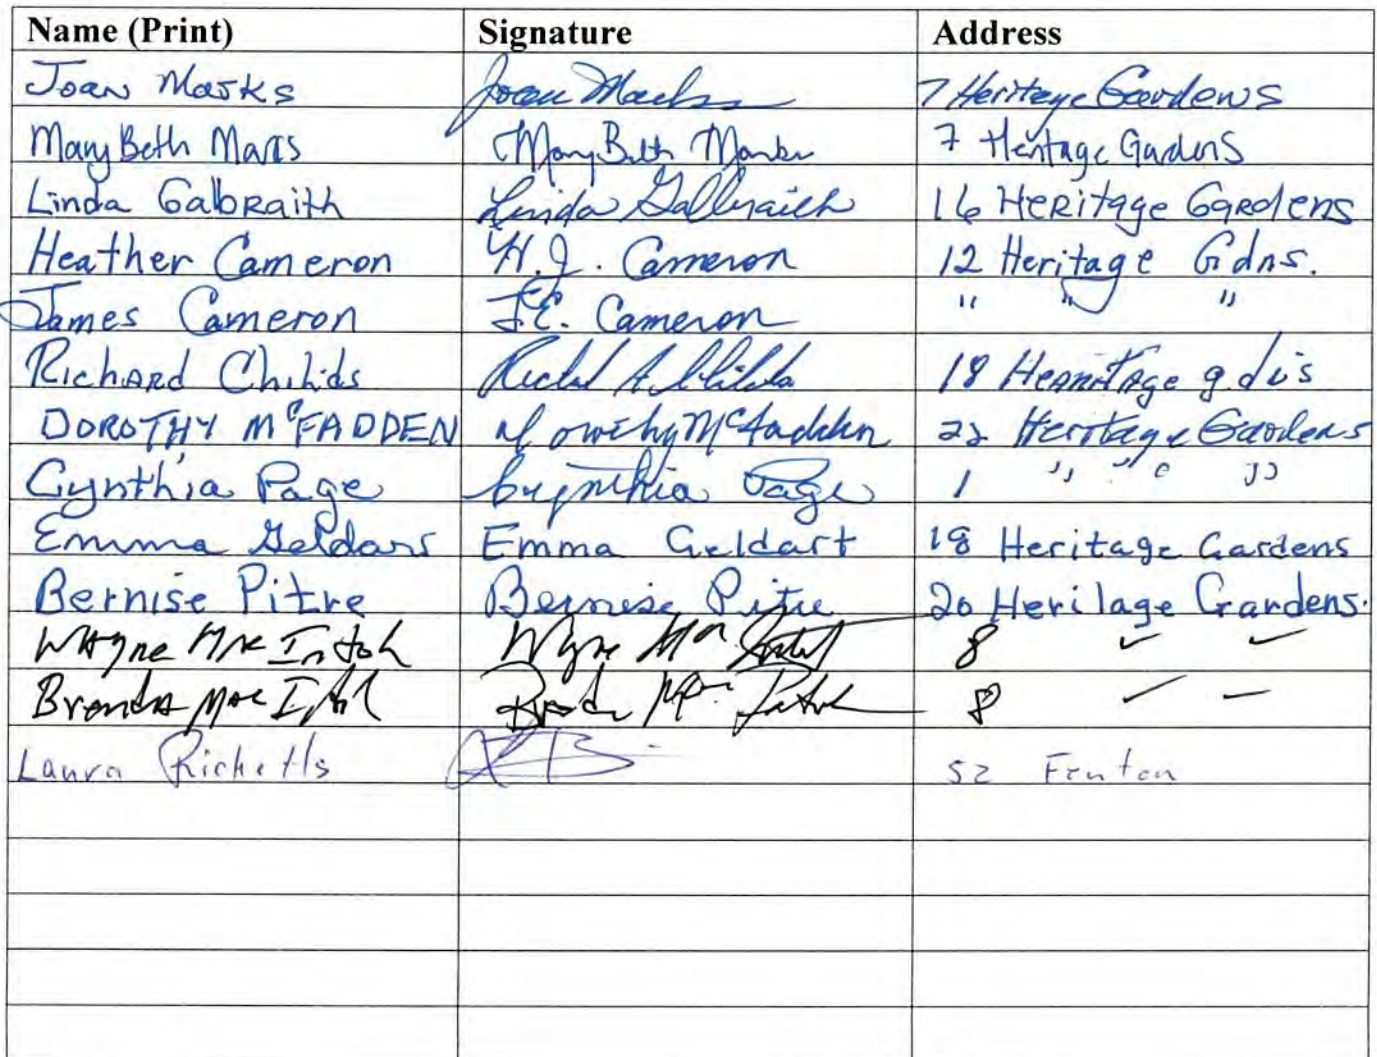 Name (Print) Signature Address
Joan Marks Joan Marks 7 Heritage Gardens
Mary Beth Marks Mary Beth Marks 7 Heritage Gardens
Linda GalbRaith Linda Galbraith 16 HERitage GaRdens
Heather Cameron H.J. Cameron 12 Heritage Gdns.
James Cameron J.E. Cameron " " "
RichaRd Childs Richd A. Childs 18 Heritage
DOROTHY McFADDEN Dorothy McFadden 22 Heritage Gardens
Cynthia Page Cynthia Page 1 " " "
Emma Geldart Emma Geldart 18 Heritage Gardens
Bernise Pitre Bernise Pitre 20 Heritage Gardens.
Wayne MacIntosh Wayne 8 ✓ ✓
Brenda Mac Brenda 8
Laura Ricketts 52 Fenton